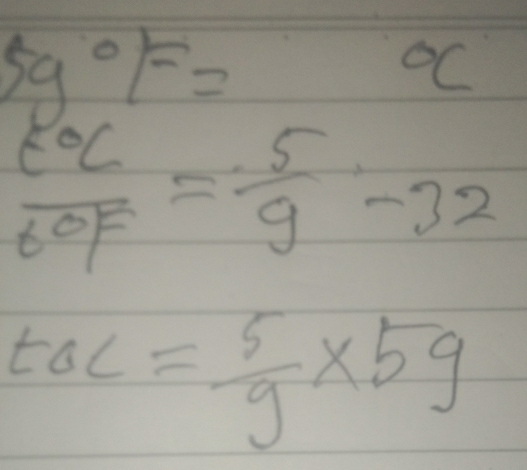 59 °F = °C
t°C/t°F = 5/9 - 32
t°C = 5/9 × 59